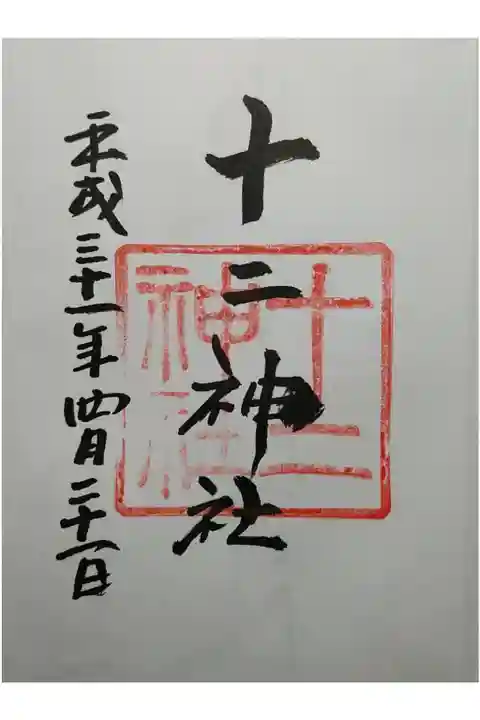 十二神社
十二
神社
平成三十一年四月二十一日